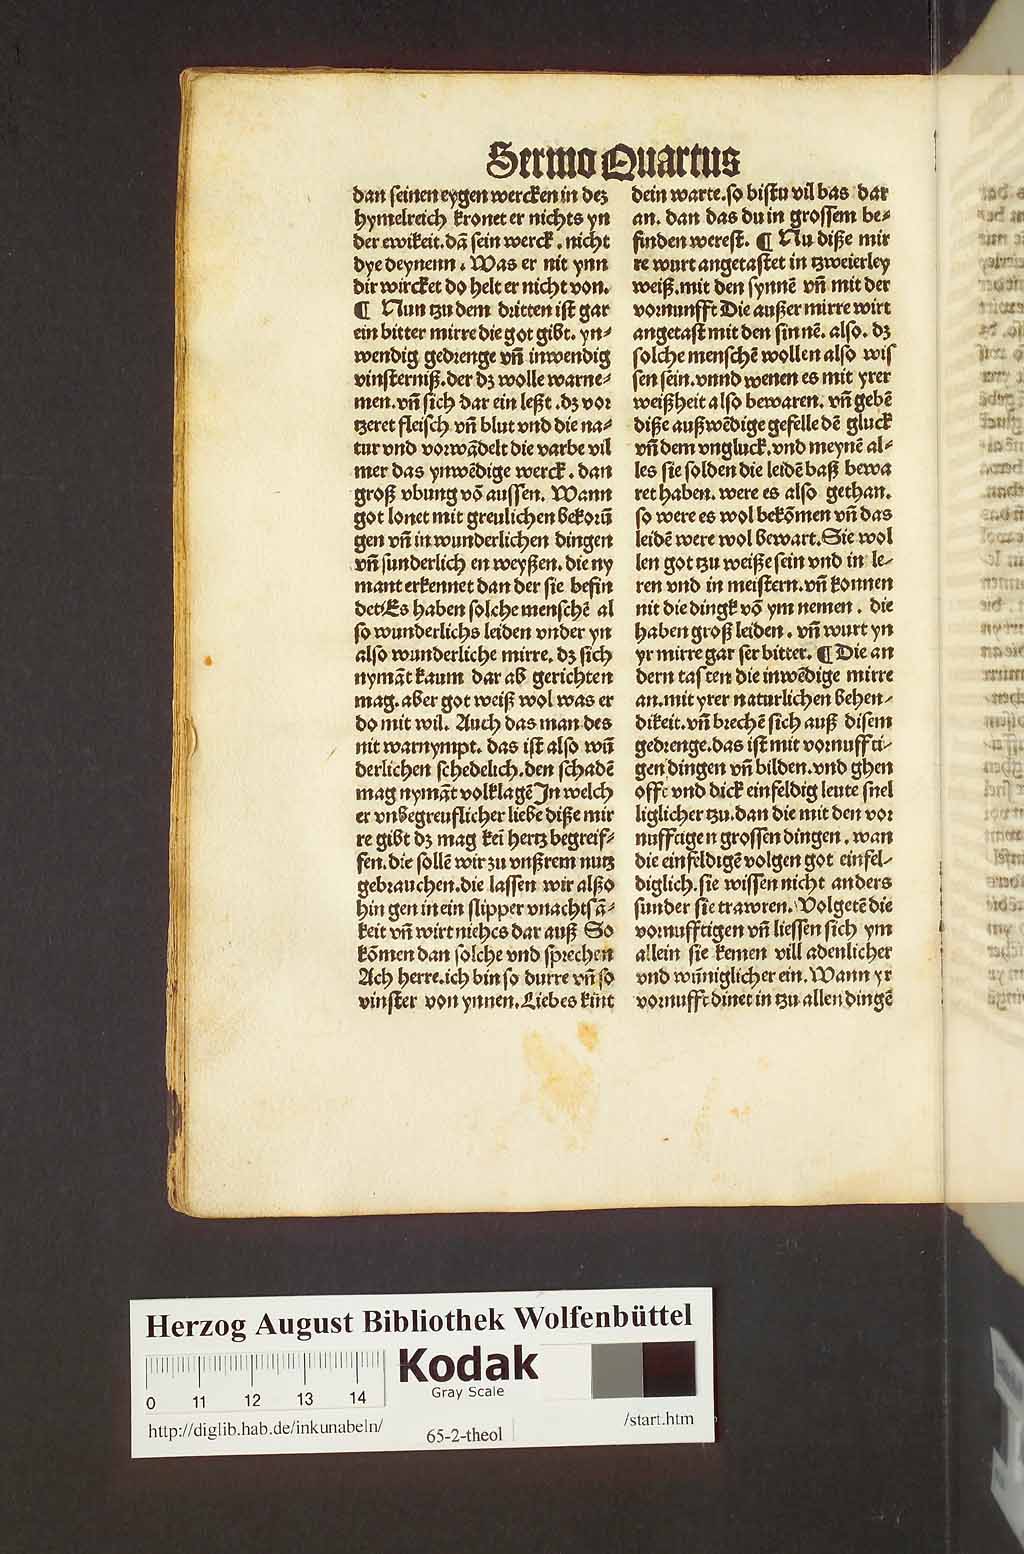 Sermo Quartus
dan seinen eygen wercken in dez
hymelreich kronet er nichts yn
der ewikeit. dā sein werck. nicht
dye deynenn. Was er nit ynn
dir wircket do helt er nicht von.
¶ Nun tzu dem dritten ist gar
ein bitter mirre die got gibt. yn⸗
wendig gedrenge vn̄ inwendig
vinsterniß. der dz wolle warne⸗
men. vn̄ sich dar ein leßt. dz vor
tzeret fleisch vn̄ blut vnd die na⸗
tur vnd vorwādelt die varbe vil
mer das ynwēdige werck. dan
groß vbung vō aussen. Wann
got lonet mit greulichen bekorū
gen vn̄ in wunderlichen dingen
vn̄ sunderlich en weyßen. die ny
mant erkennet dan der sie befin
det/Es haben solche menschē al
so wunderlichs leiden vnder yn
also wunderliche mirre. dz sich
nymāt kaum dar ab gerichten
mag. aber got weiß wol was er
do mit wil. Auch das man des
nit warnympt. das ist also wū
derlichen schedelich. den schadē
mag nymāt volklagē In welch
er vnbegreuflicher liebe diße mir
re gibt dz mag kei hertz begreif⸗
fen. die sollē wir zu vnßrem nutz
gebrauchen. die lassen wir alßo
hin gen in ein slipper vnachtsā⸗
keit vn̄ wirt niehcs dar auß So
kōmen dan solche vnd sprechen
Ach herre. ich bin so durre vn̄ so
vinster von ynnen. Liebes kint
dein warte. so bistu vil bas dar
an. dan das du in grossem be⸗
finden werest. ¶ Nu diße mir
re wurt angetastet in tzweierley
weiß. mit den synnē vn̄ mit der
vornunfft Die außer mirre wirt
angetast mit den sinnē. also. dz
solche menschē wollen also wis
sen sein. vnnd wenen es mit yrer
weißheit also bewaren. vn̄ gebē
diße außwēdige gefelle dē gluck
vn̄ dem vngluck. vnd meynē al⸗
les sie solden die leidē baß bewa
ret haben. were es also gethan.
so were es wol bekōmen vn̄ das
leidē were wol bewart. Sie wol
len got tzu weiße sein vnd in le⸗
ren vnd in meistern. vn̄ konnen
nit die dingk vō ym nemen. die
haben groß leiden. vn̄ wurt yn
yr mirre gar ser bitter. ¶ Die an
dern tasten die inwēdige mirre
an. mit yrer naturlichen behen⸗
dikeit. vn̄ brechē sich auß disem
gedrenge. das ist mit vornuffti⸗
gen dingen vn̄ bilden. vnd ghen
offt vnd dick einfeldig leute snel
liglicher tzu. dan die mit den vor
nufftigen grossen dingen. wan
die einfeldigē volgen got einfel⸗
diglich. sie wissen nicht anders
sunder sie trawren. Volgetē die
vornufftigen vn̄ liessen sich ym
allein sie kemen vill adenlicher
vnd wūniglicher ein. Wann yr
vornufft dinet in tzu allen dingē
Herzog August Bibliothek Wolfenbüttel
Kodak
Gray Scale
0 11 12 13 14
http://diglib.hab.de/inkunabeln/
65-2-theol
/start.htm